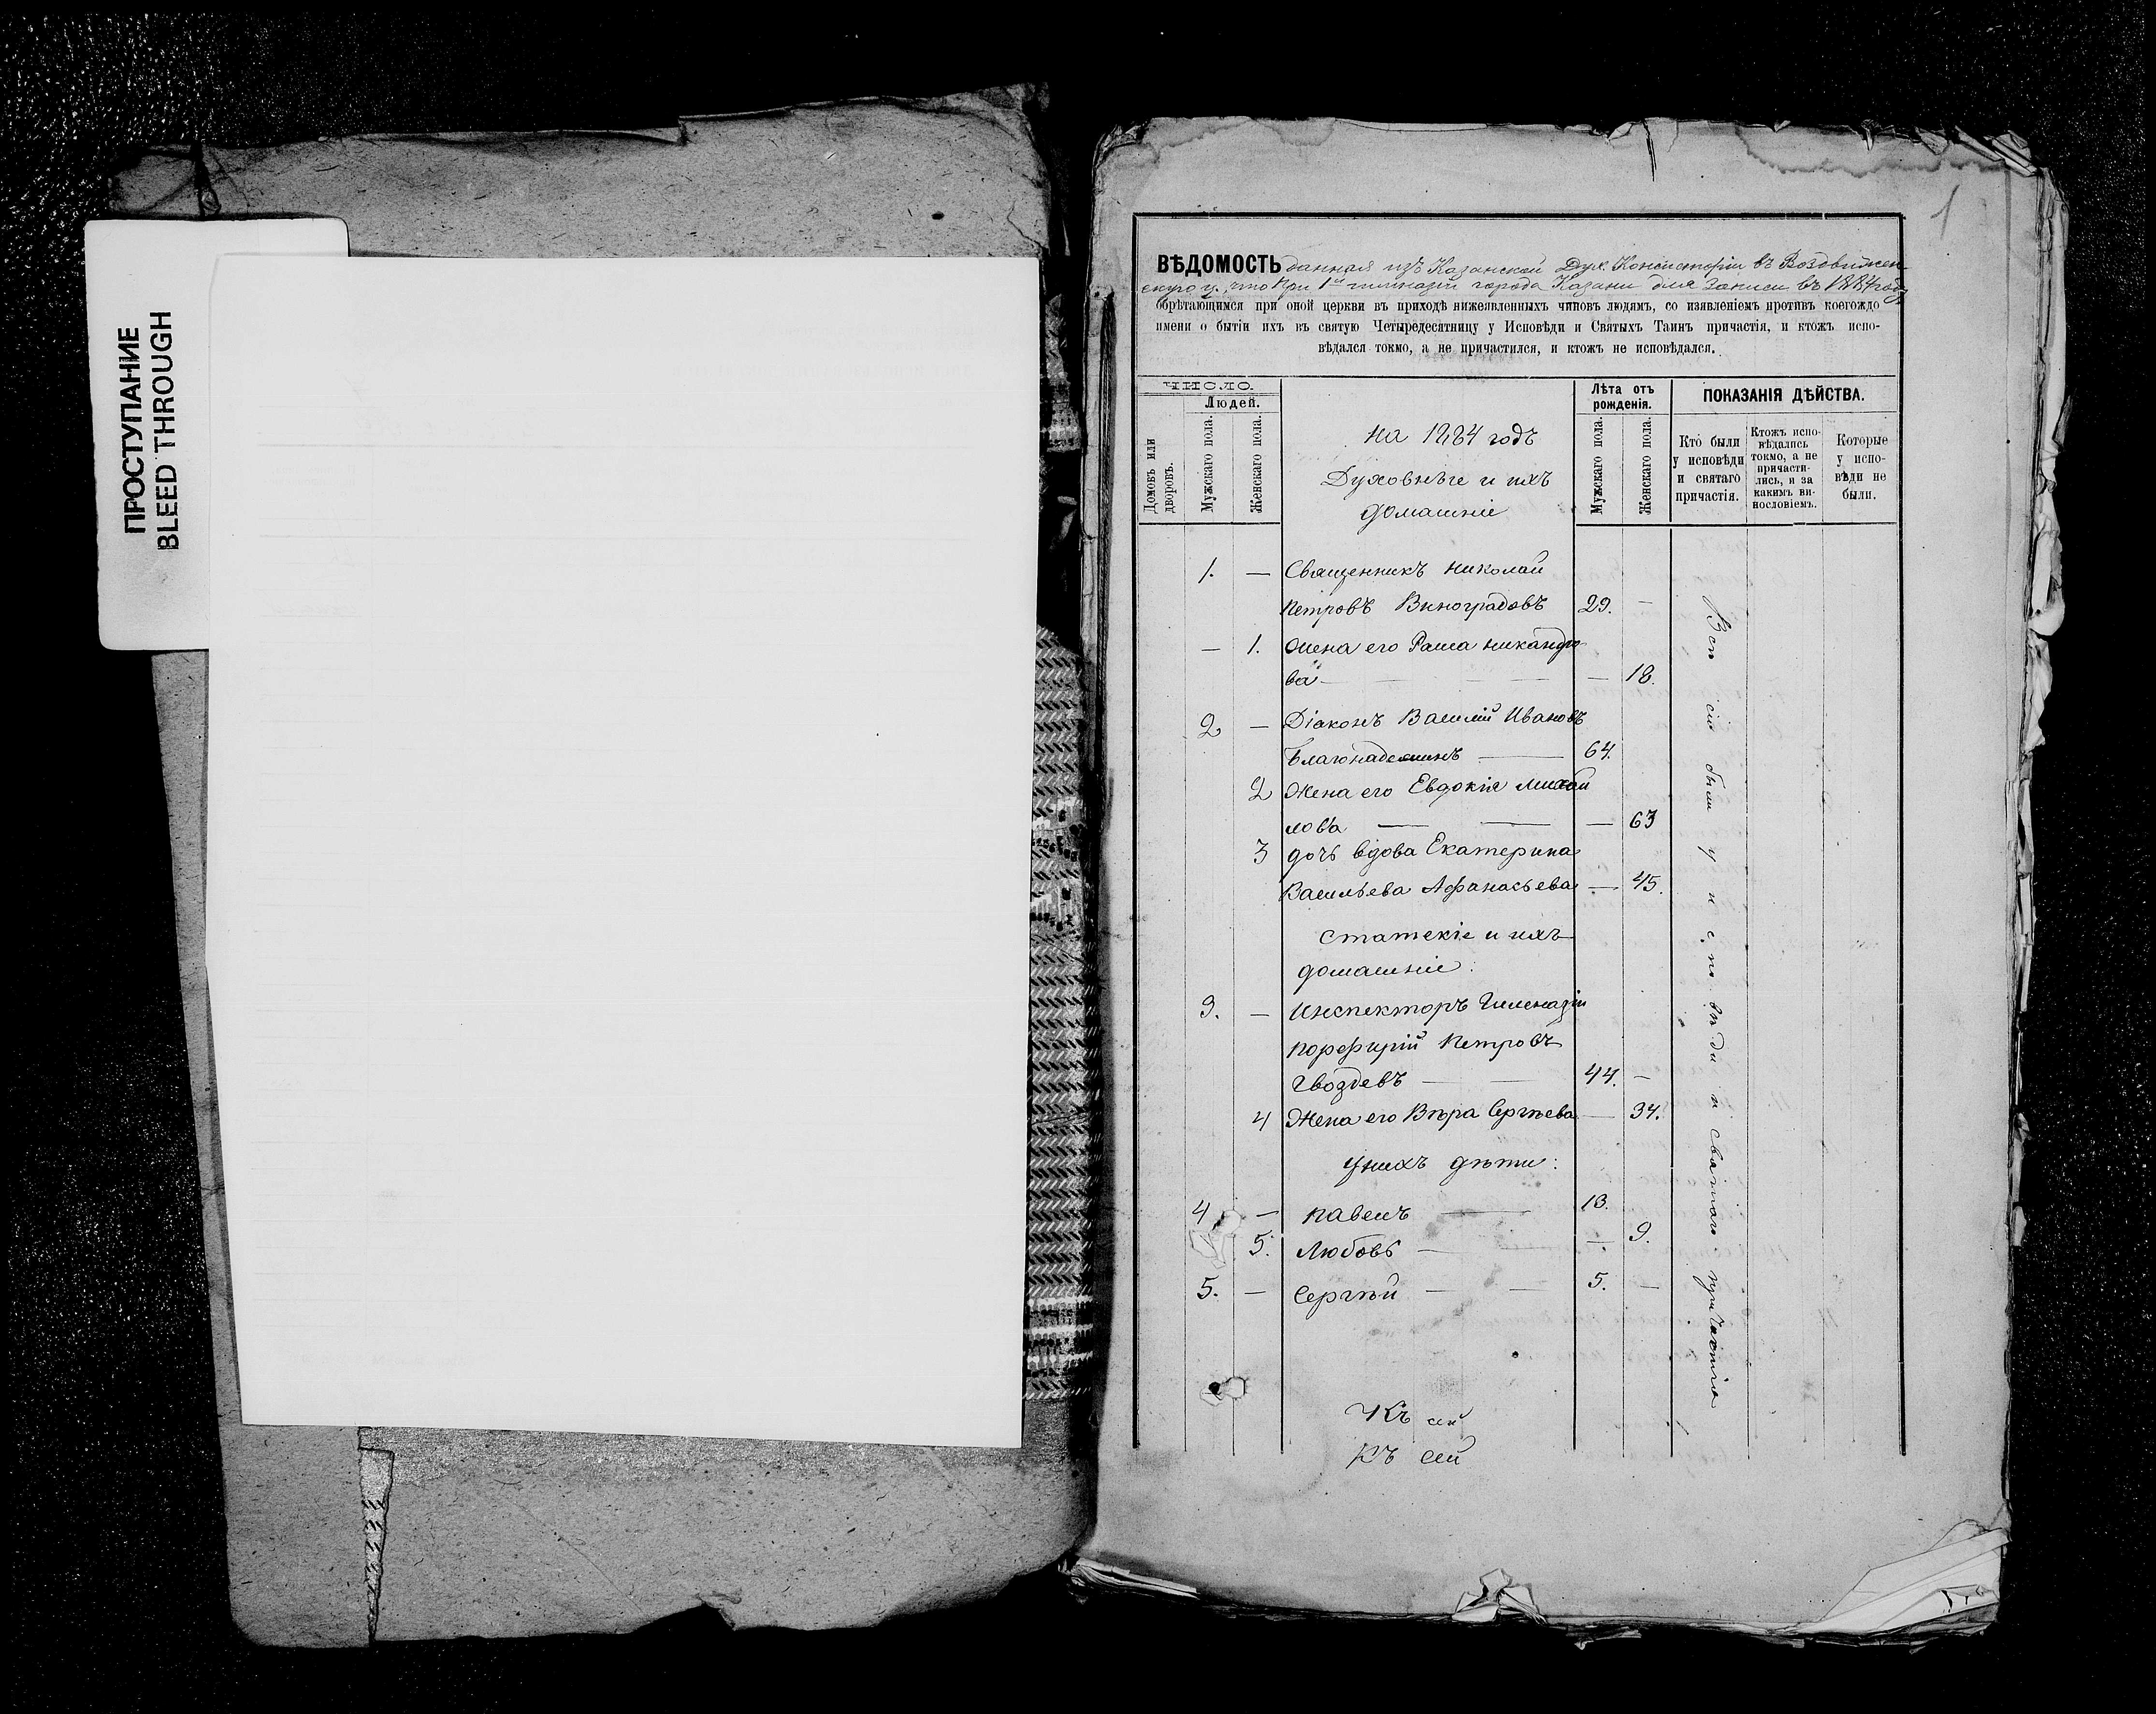 ПРОСТУПАНИЕ
BLEED THROUGH
1
ВѢДОМОСТЬ данная изъ Казанской Дух. Консисторіи въ Воздвижен-
скую ц., что при 1й гимназіи города Казани для записи въ 1884 году
обрѣтающимся при оной церкви въ приходѣ нижеявленныхъ чиновъ людямъ, со изявленіемъ противъ коегождо
имени о бытіи ихъ въ святую Четыредесятницу у Исповѣди и Святыхъ Таинъ причастія, и ктожъ испо-
вѣдался токмо, а не причастился, и ктожъ не исповѣдался.
ЧИСЛО.
Людей.
Домовъ или дворовъ.
Мужскаго пола.
Женскаго пола.
на 1884 годъ
Духовные и ихъ
домашніе
Лѣта отъ
рожденія.
Мужскаго пола.
Женскаго пола.
ПОКАЗАНІЯ ДѢЙСТВА.
Кто были
у исповѣди
и святаго
причастія.
Ктожъ испо-
вѣдались
токмо, а не
причасти-
лись, и за
какимъ ви-
нословіемъ.
Которые
у испо-
вѣди не
были.
1. — Священникъ Николай
Петровъ Виноградовъ 29. —
— 1. Жена его Раиса Никандро
ва — — 18.
2 — Діаконъ Василій Ивановъ
Благонадеждинъ — 64.
2 Жена его Евдокія Михай
лова — — — 63
3 дочь вдова Екатерина
Васильева Афанасьева — 45.
Статскіе и ихъ
домашніе:
3. — Инспекторъ Гимназіи
Порфирій Петровъ
Гвоздевъ — — 44. —
4 Жена его Вѣра Сергѣева — 34.
У нихъ дѣти:
4 — Павелъ — 13.
5. Любовь — — 9.
5. — Сергѣй — — 5. —
Всѣ сіи были у исповѣди и святаго причастія
Къ сей
Къ сей